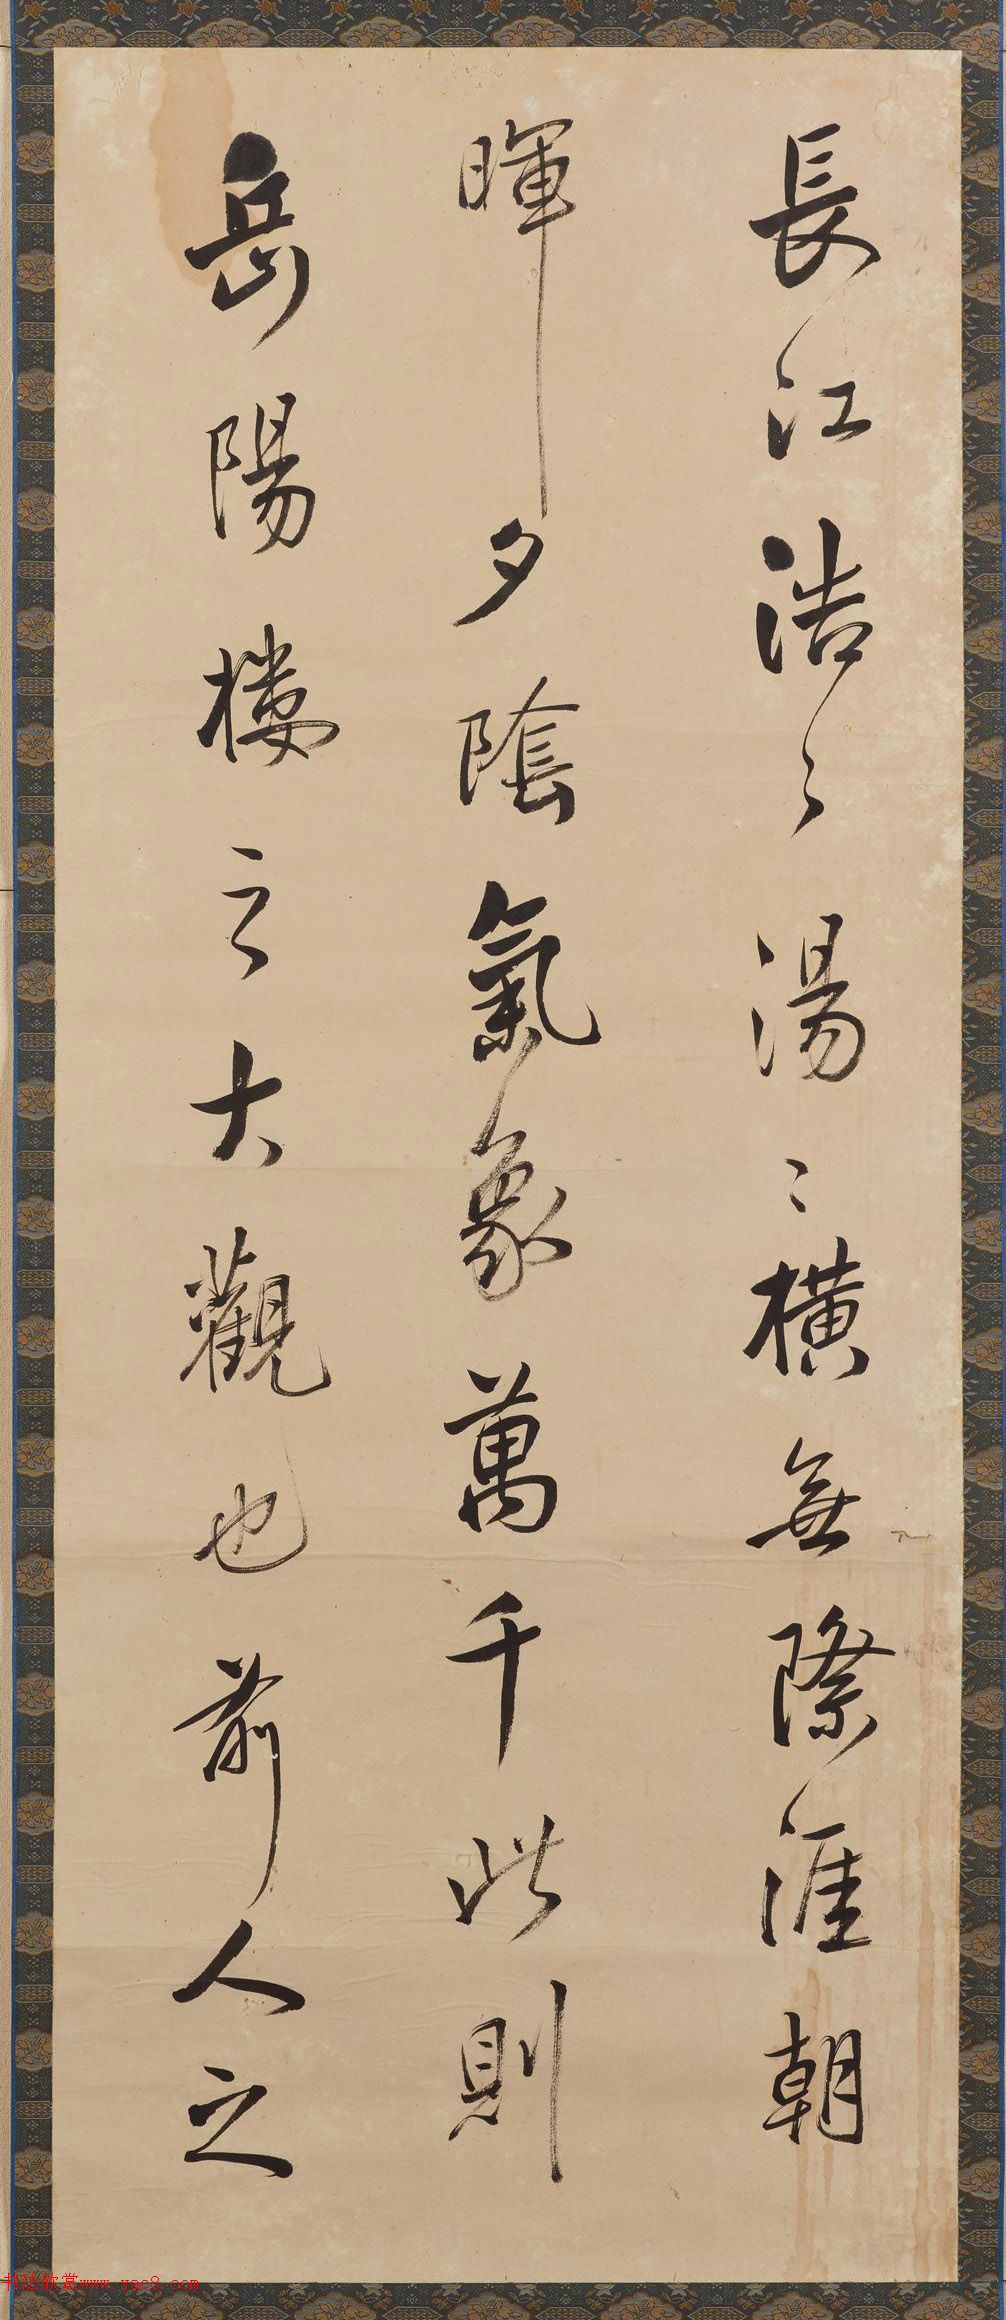 長江浩々湯々橫無際涯朝
暉夕陰氣象萬千此則
岳陽樓之大觀也前人之
书法欣赏www.yac8.com